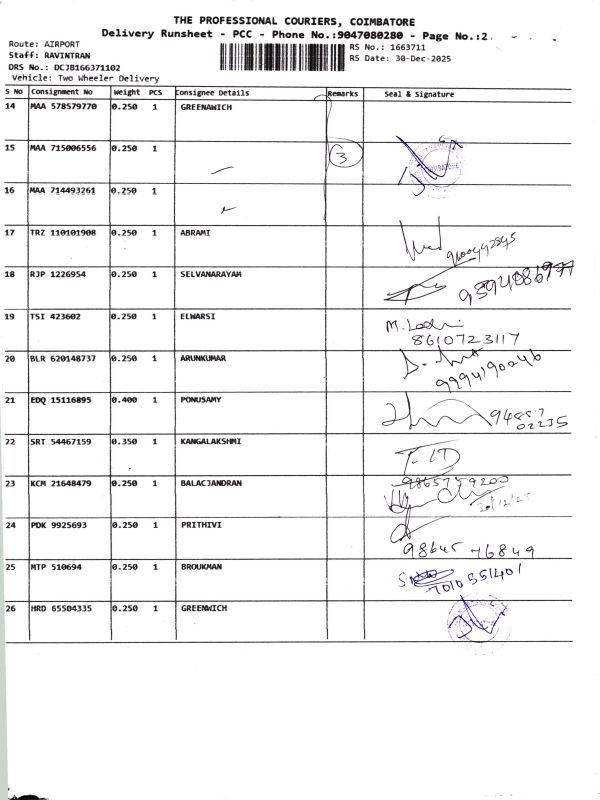 THE PROFESSIONAL COURIERS, COIMBATORE
Delivery Runsheet - PCC - Phone No.:9047080280 - Page No.:2
Route: AIRPORT
RS No.: 1663711
Staff: RAVINTRAN
RS Date: 30-Dec-2025
DRS No.: DCJB166371102
Vehicle: Two Wheeler Delivery
S No Consignment No Weight PCS Consignee Details Remarks Seal & Signature
14 MAA 578579770 0.250 1 GREENAWICH
15 MAA 715006556 0.250 1 3
16 MAA 714493261 0.250 1
17 TRZ 110101908 0.250 1 ABRAMI
18 RJP 1226954 0.250 1 SELVANARAYAM
19 TSI 423602 0.250 1 ELWARSI
8610723117
20 BLR 620148737 0.250 1 ARUNKUMAR
9994190046
21 EDQ 15116895 0.400 1 PONUSAMY 94887
02235
22 SRT 54467159 0.350 1 KANGALAKSHMI
23 KCM 21648479 0.250 1 BALACJANDRAN
24 PDK 9925693 0.250 1 PRITHIVI
98645 76849
25 MTP 510694 0.250 1 BROUKMAN
7010551401
26 HRD 65504335 0.250 1 GREENWICH